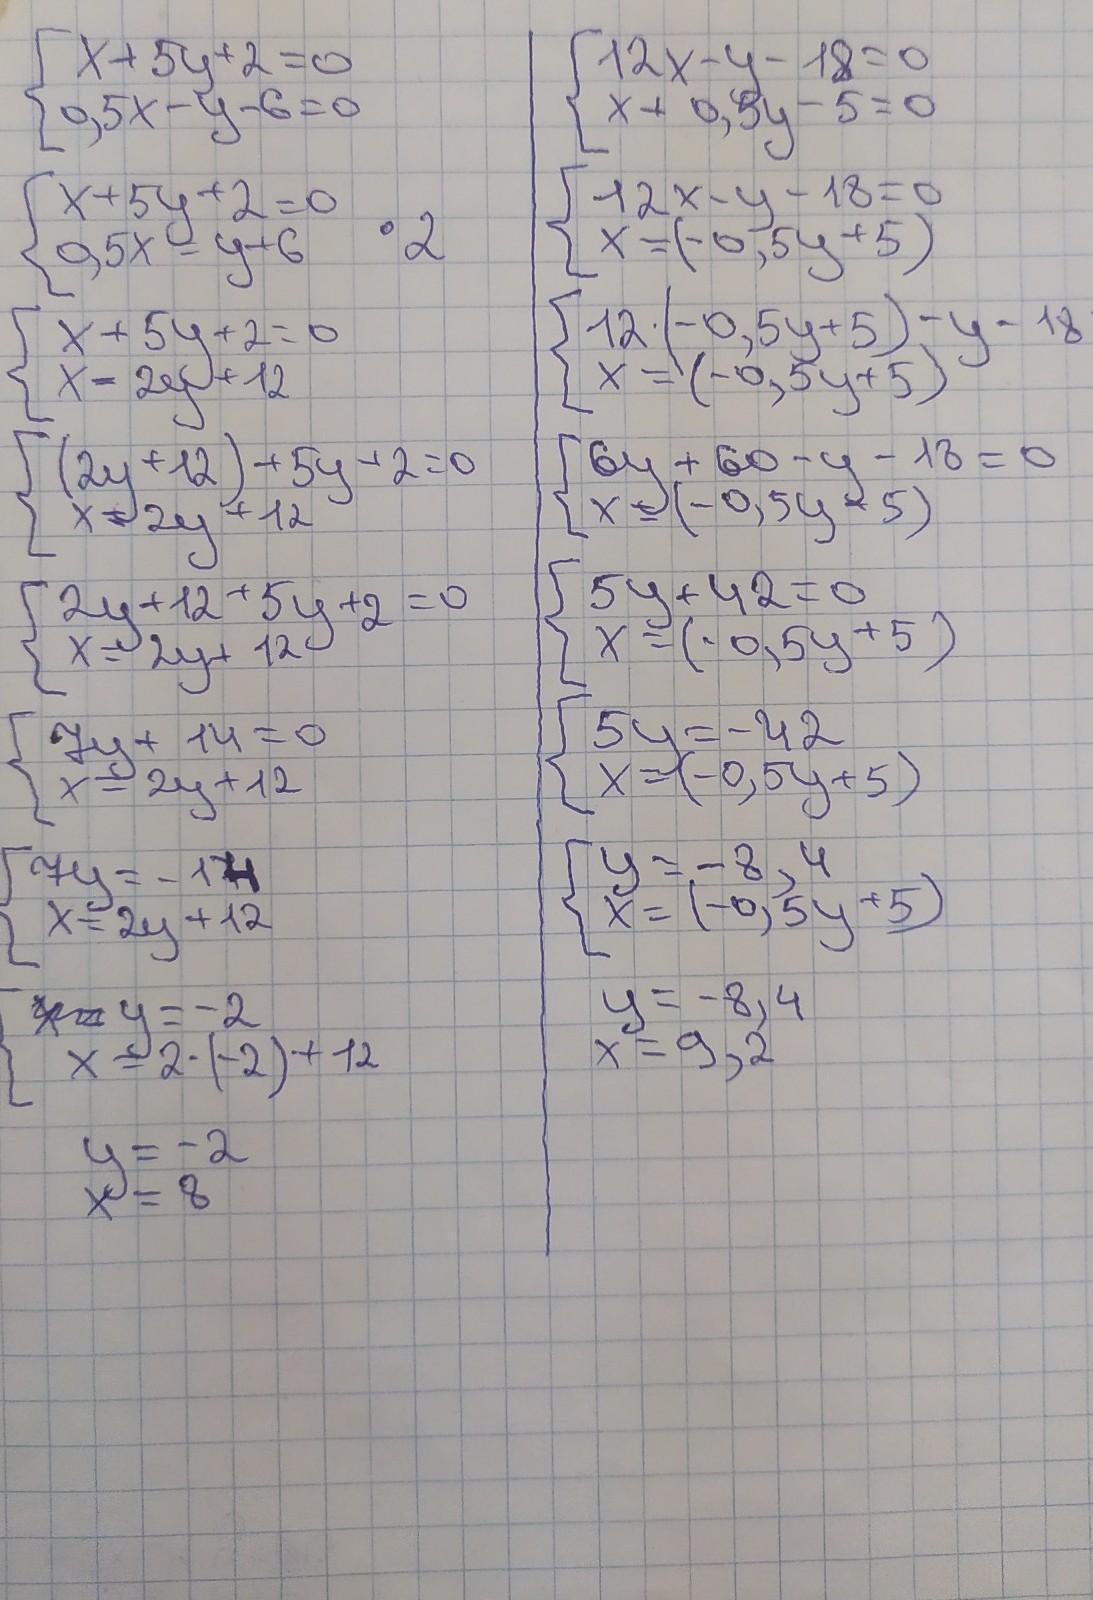 x+5y+2=0
0,5x-y-6=0
x+5y+2=0
0,5x=y+6 ·2
x+5y+2=0
x=2y+12
(2y+12)+5y+2=0
x=2y+12
2y+12+5y+2=0
x=2y+12
7y+14=0
x=2y+12
7y=-14
x=2y+12
y=-2
x=2·(-2)+12
y=-2
x=8
12x-y-18=0
x+0,5y-5=0
12x-y-18=0
x=(-0,5y+5)
12·(-0,5y+5)-y-18
x=(-0,5y+5)
6y+60-y-18=0
x=(-0,5y+5)
5y+42=0
x=(-0,5y+5)
5y=-42
x=(-0,5y+5)
y=-8,4
x=(-0,5y+5)
y=-8,4
x=9,2